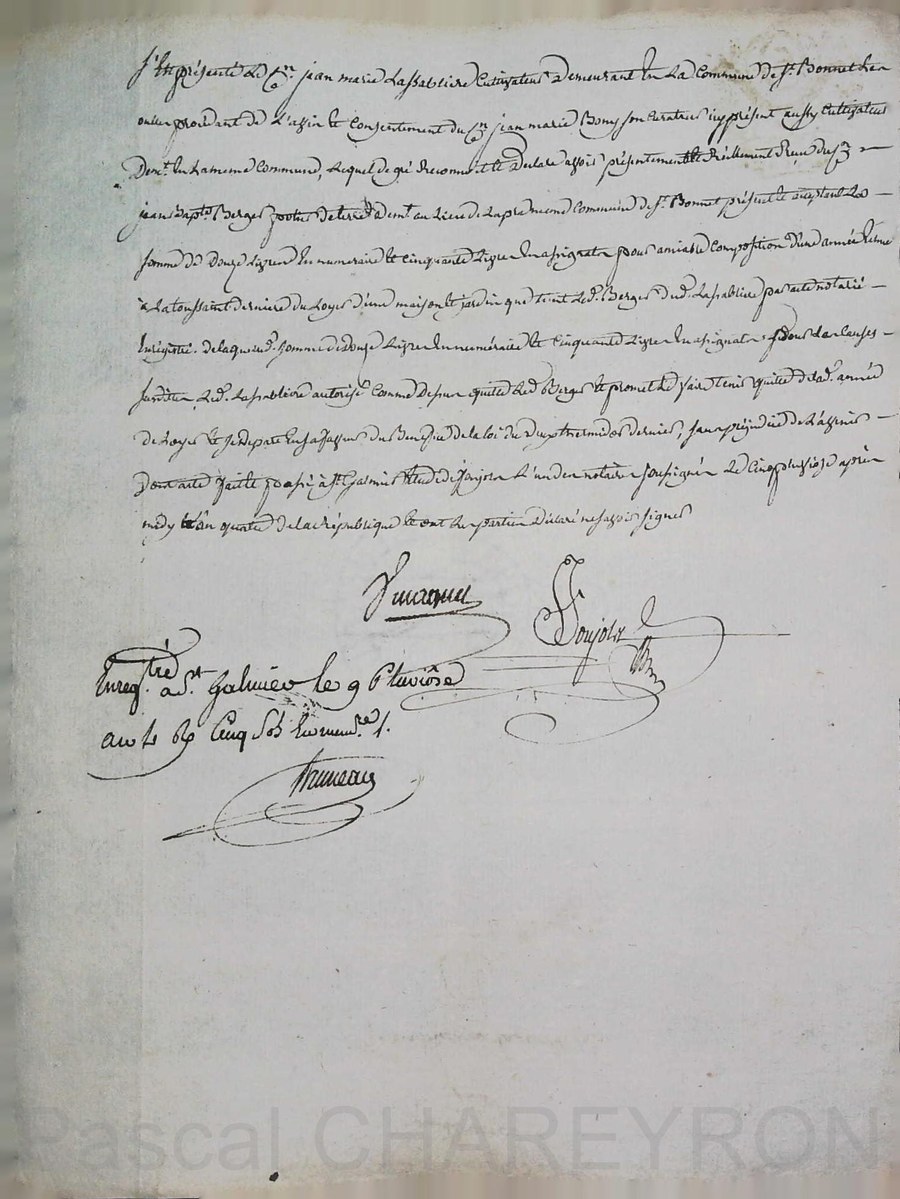 s'Est présenté Le Cn. jean marie Lassablière Cultivateur Demeurant En La Commune de St. Bonnet Les
oulles procédant de L'avis et Consentement du Cn. jean marie Bony son Curateur icy présent aussy Cultivateur
Demt. En La meme Commune, Lequel de gré Reconnoit et Déclare avoir présentement et Réellement Reçu du Cn. —
jean Bapte. Berger potier de terre Demt. au Lieu de La meme Commune de St. Bonnet présent et acceptant La —
somme de Douze Livres En numeraire et Cinquante Livres En assignats pour amiable Composition d'une année Echue
à La toussaint derniere du Loyer d'une maison et jardin que tient Led. Berger dud. Lassablière par acte notarié —
Enregistré. de laquelle somme de Douze Livres En numéraire et Cinquante Livres En assignats pour La Causes —
susdites, Led. Lassablière autorisé Comme dessus quitte Led. Berger et promet Le faire tenir quitte de lad. année
de Loyer et se départ En sa faveur du Bénéfice de la loi du Deux thermidor dernier, sans préjudice de L'avenir —
Dont acte fait et passé à St. Galmier Etude de Jonjon L'un des notaires soussignés Le Cinq pluviose après
midy L'an quatre de la République et ont Les parties Déclaré ne savoir signer
Jonjon
Enregtré. a St. Galmier le 9 Pluviôse
an 4 R Cinq Sols En numre.
Pascal CHAREYRON